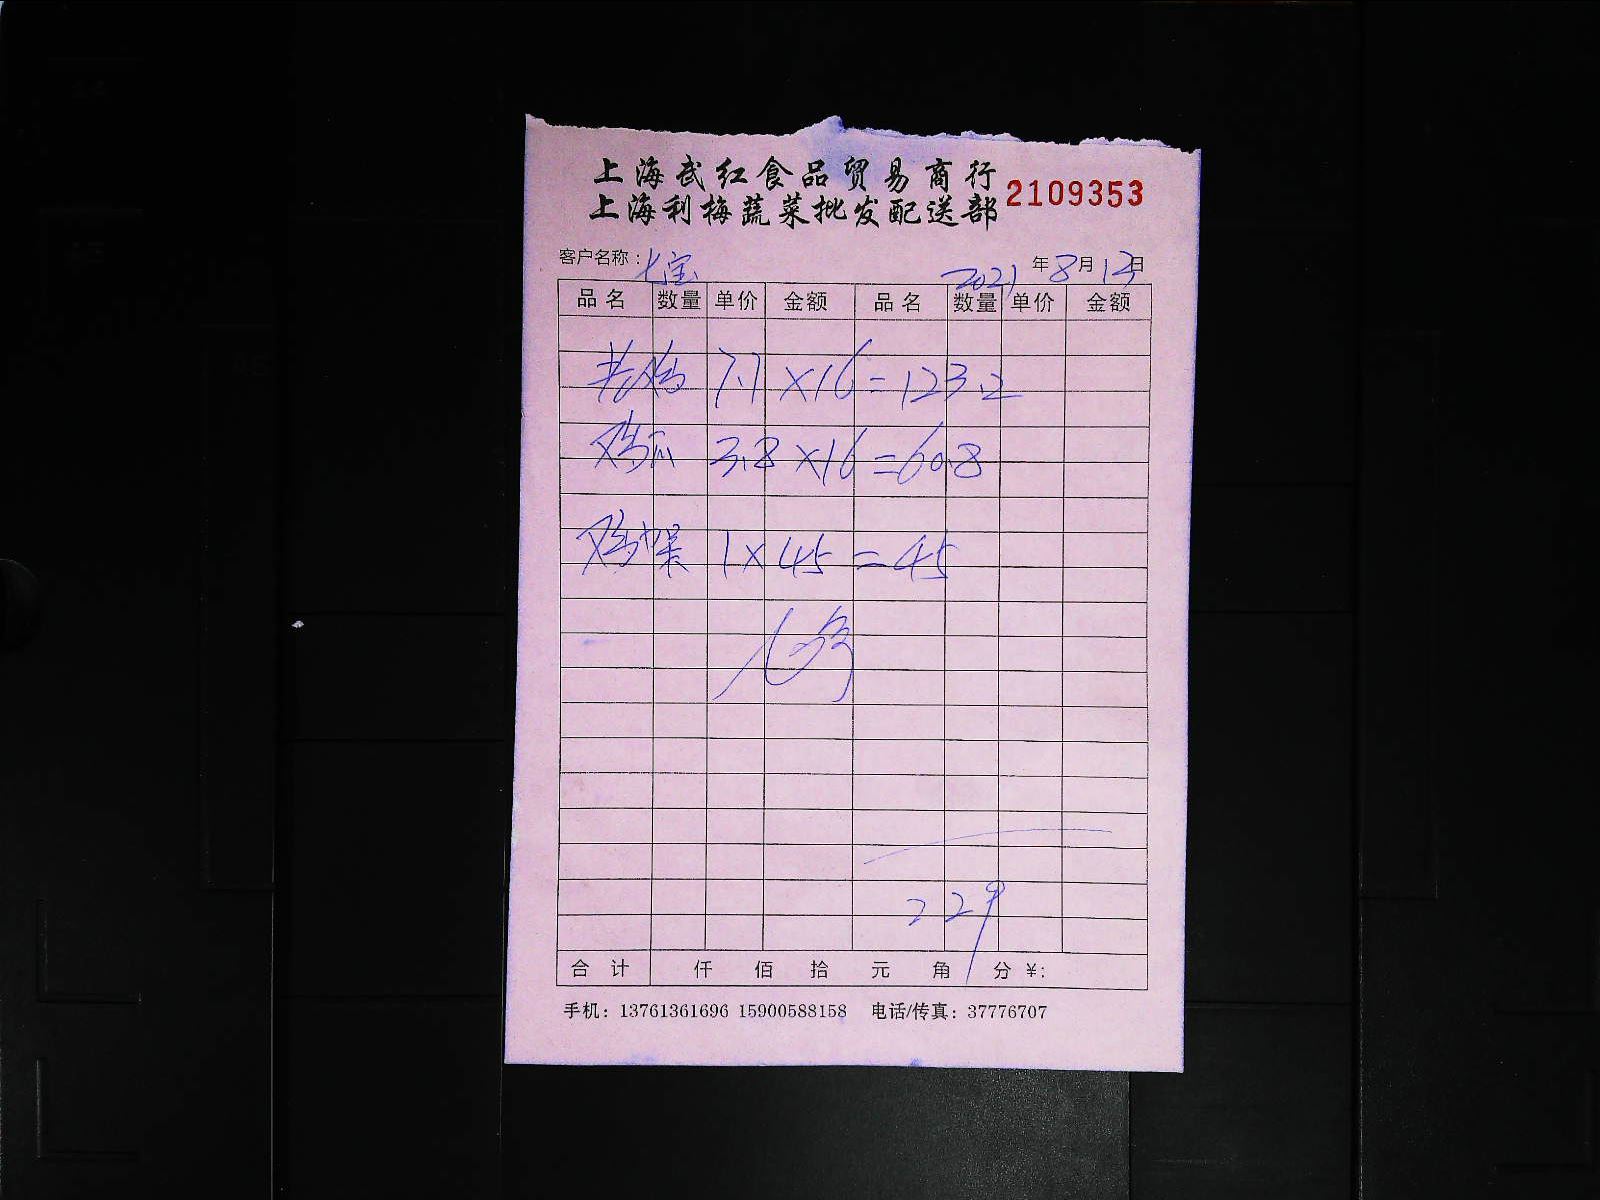 上海武红食品贸易商行
上海利梅蔬菜批发配送部 2109353
客户名称：七宝 2021年8月12日
品名 数量 单价 金额 品名 数量 单价 金额
老鸡 7.7×16=123.2
鸡爪 3.8×16=60.8
鸡架 1×45=45
229
合计 仟 佰 拾 元 角 分 ¥:
手机：13761361696 15900588158 电话/传真：37776707